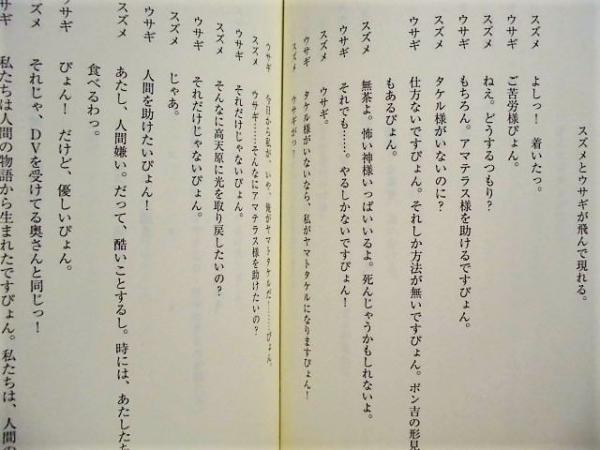 スズメとウサギが飛んで現れる。
スズメ よしっ! 着いたっ。
ウサギ ご苦労様ぴょん。
スズメ ねえ。どうするつもり?
ウサギ もちろん。アマテラス様を助けるですぴょん。
スズメ タケル様がいないのに?
ウサギ 仕方ないですぴょん。それしか方法が無いですぴょん。ポン吉の形見
もあるぴょん。
スズメ 無茶よ。怖い神様いっぱいいるよ。死んじゃうかもしれないよ。
ウサギ それでも……。やるしかないですぴょん!
スズメ ウサギ。
ウサギ タケル様がいないなら、私がヤマトタケルになりますぴょん!
スズメ ウサギがっ!
ウサギ 今日から私が、いや、俺がヤマトタケルだ!……ぴょん。
スズメ ウサギ……そんなにアマテラス様を助けたいの?
ウサギ それだけじゃないぴょん。
スズメ そんなに高天原に光を取り戻したいの?
ウサギ それだけじゃないぴょん。
スズメ じゃあ。
ウサギ 人間を助けたいぴょん!
スズメ あたし、人間嫌い。だって、酷いことするし。時には、あたしたち
食べるわっ。
ウサギ ぴょん! だけど、優しいぴょん。
ズメ それじゃ、DVを受けてる奥さんと同じっ!
サギ 私たちは人間の物語から生まれたですぴょん。私たちは、人間の